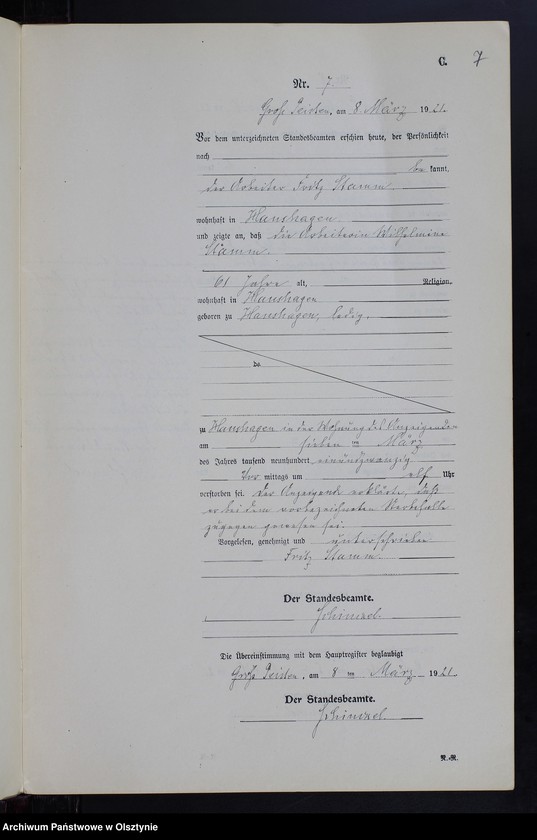 C. 7
Nr. 7.
Groß Peisten, am 8 März 1921.
Vor dem unterzeichneten Standesbeamten erschien heute, der Persönlichkeit
nach
be kannt,
der Arbeiter Fritz Stamm
wohnhaft in Hanshagen
und zeigte an, daß die Arbeiterin Wilhelmine
Stamm.
61 Jahre alt, Religion,
wohnhaft in Hanshagen
geboren zu Hanshagen, ledig.
de
zu Hanshagen in der Wohnung des Anzeigenden
am sieben ten März
des Jahres tausend neunhundert einundzwanzig
Vor mittags um elf Uhr
verstorben sei. Der Anzeigende erklärte, daß
er bei dem vorbezeichneten Sterbefalle
zugegen gewesen sei.
Vorgelesen, genehmigt und unterschrieben
Fritz Stamm
Der Standesbeamte.
Die Übereinstimmung mit dem Hauptregister beglaubigt
Groß Peisten, am 8 ten März 1921.
Der Standesbeamte.
Archiwum Państwowe w Olsztynie